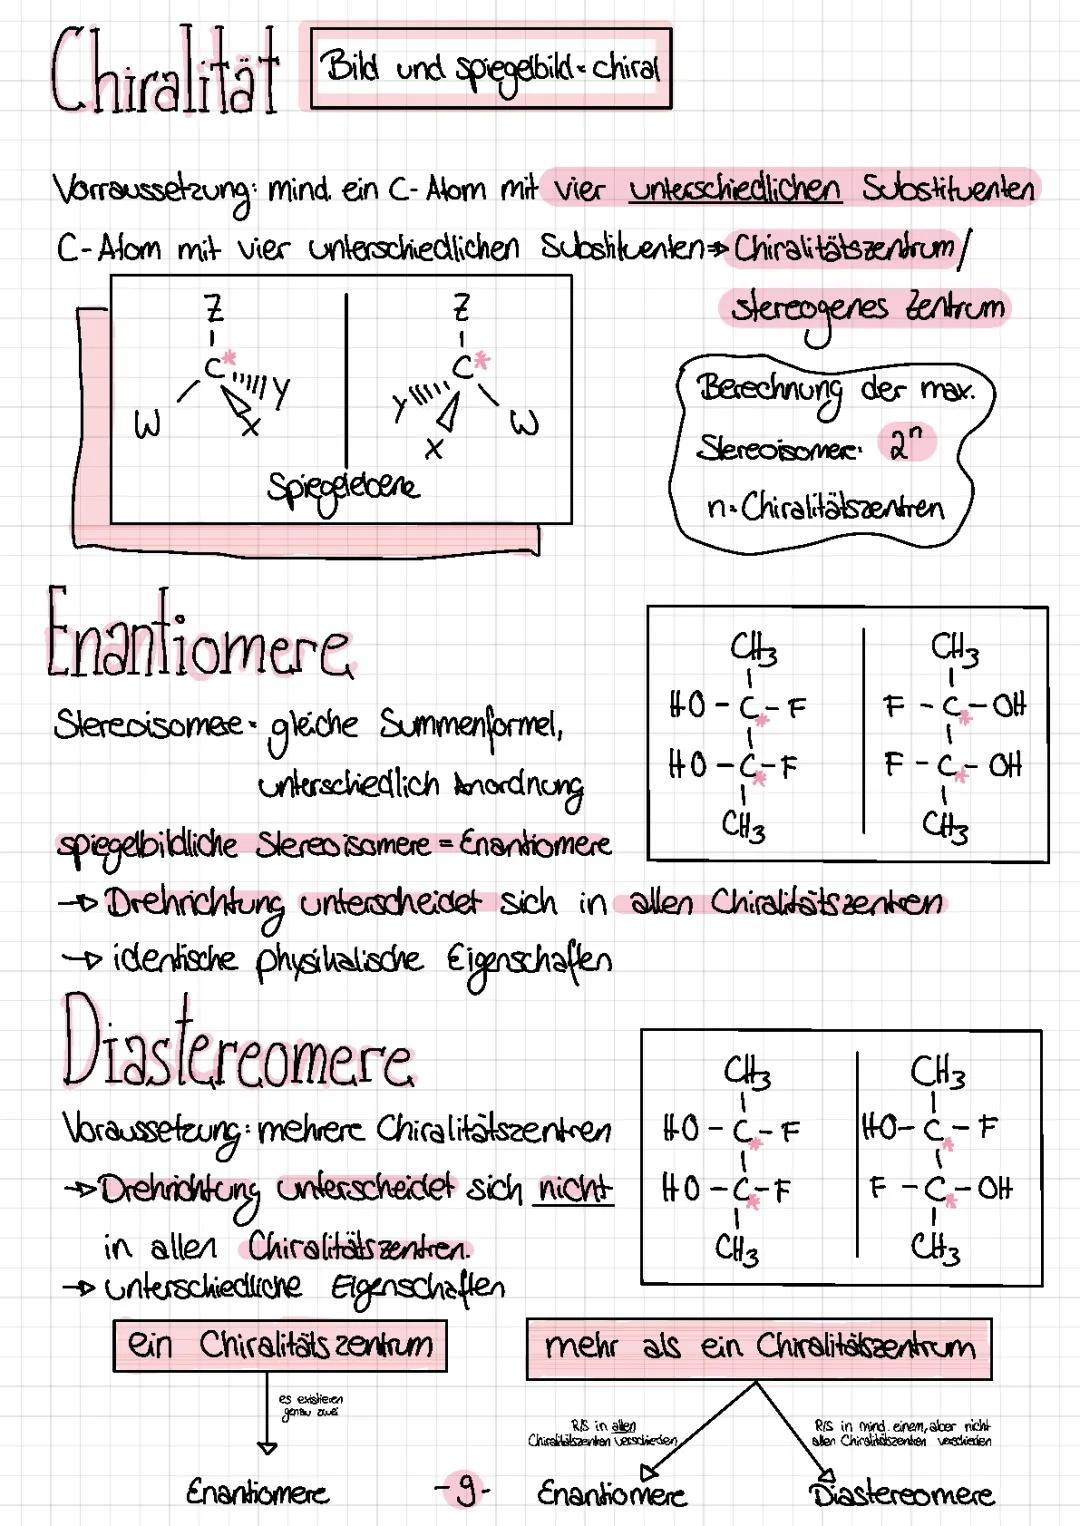 Chiralität
Bild und Spiegelbild = chiral
Vorraussetzung: mind. ein C-Atom mit vier unterschiedlichen Substituenten
C-Atom mit vier unterschiedlichen Substituenten ⇒ Chiralitätszentrum/
stereogenes Zentrum
Z Z
C* C*
W Y X Y X W
Spiegelebene
Berechnung der max.
Stereoisomere: 2ⁿ
n = Chiralitätszentren
Enantiomere
Stereoisomere = gleiche Summenformel,
unterschiedlich Anordnung
spiegelbildliche Stereoisomere = Enantiomere
→ Drehrichtung unterscheidet sich in allen Chiralitätszentren
→ identische physikalische Eigenschaften
CH3 CH3
HO - C* - F F - C* - OH
HO - C* - F F - C* - OH
CH3 CH3
Diastereomere
Voraussetzung: mehrere Chiralitätszentren
→ Drehrichtung unterscheidet sich nicht
in allen Chiralitätszentren.
→ unterschiedliche Eigenschaften
CH3 CH3
HO - C* - F HO - C* - F
HO - C* - F F - C* - OH
CH3 CH3
ein Chiralitätszentrum
es existieren
genau zwei
Enantiomere
mehr als ein Chiralitätszentrum
R/S in allen
Chiralitätszentren verschieden
R/S in mind. einem, aber nicht
allen Chiralitätszentren verschieden
Enantiomere
Diastereomere
-9-